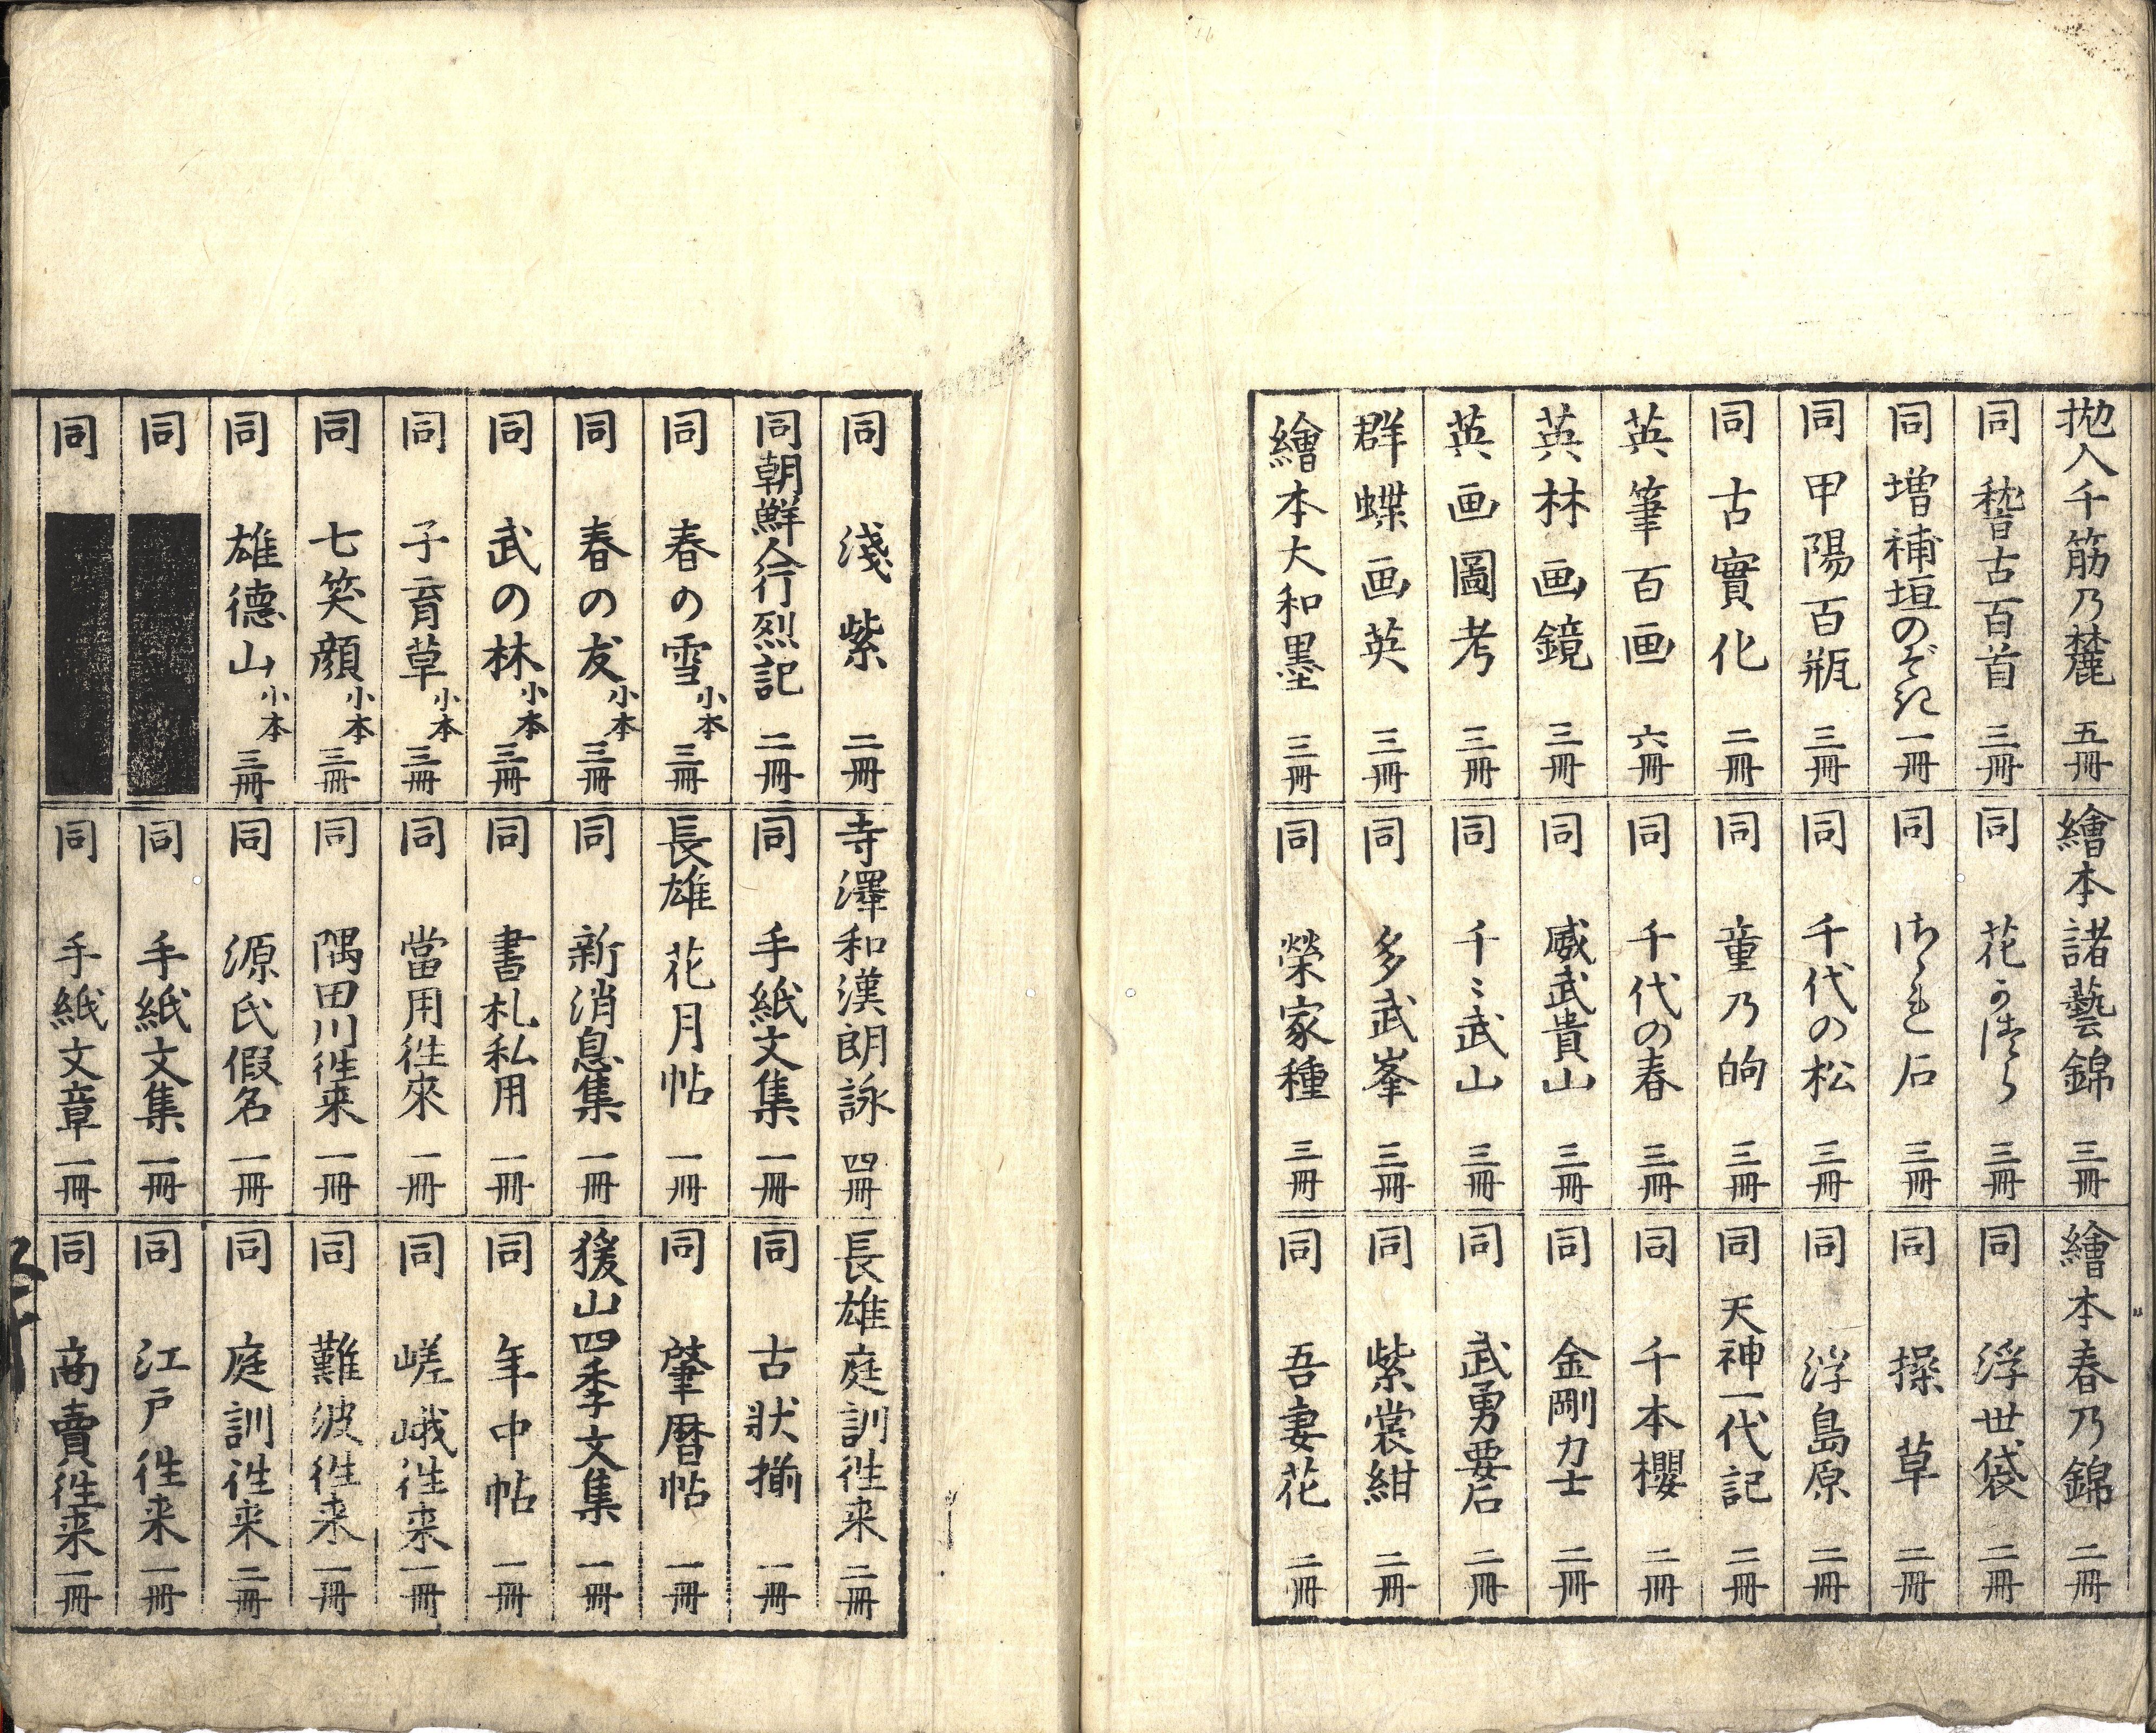 拋入千筋乃麓 五冊
同 稽古百首 三冊
同 増補垣のぞき 一冊
同 甲陽百瓶 三冊
同 古實化 二冊
英筆百画 六冊
英林画鏡 三冊
英画圖考 三冊
群蝶画英 三冊
繪本大和墨 三冊
繪本諸藝錦 三冊
同 花の 三冊
同 石 三冊
同 千代の松 三冊
同 童乃的 三冊
同 千代の春 三冊
同 威武貴山 三冊
同 千〻武山 三冊
同 多武峯 三冊
同 榮家種 三冊
繪本春乃錦 二冊
同 浮世袋 二冊
同 操草 二冊
同 浮島原 二冊
同 天神一代記 二冊
同 千本櫻 二冊
同 金剛力士 二冊
同 武勇要石 二冊
同 紫裳紺 二冊
同 吾妻花 二冊
同 淺紫 二冊
同 朝鮮人行烈記 二冊
同 春の雪 小本 三冊
同 春の友 小本 三冊
同 武の林 小本 三冊
同 子育草 小本 三冊
同 七笑顔 小本 三冊
同 雄德山 小本 三冊
同
同
寺澤和漢朗詠 四冊
同 手紙文集 一冊
長雄 花月帖 一冊
同 新消息集 一冊
同 書札私用 一冊
同 當用往來 一冊
同 隅田川往来 一冊
同 源氏假名 一冊
同 手紙文集 一冊
同 手紙文章 一冊
長雄庭訓往来 二冊
同 古狀揃 一冊
同 肇暦帖 一冊
猨山四季文集 一冊
同 年中帖 一冊
同 嵯峨往来 一冊
同 難波往来 一冊
同 庭訓往来 二冊
同 江戸往来 一冊
同 商賣往来 一冊